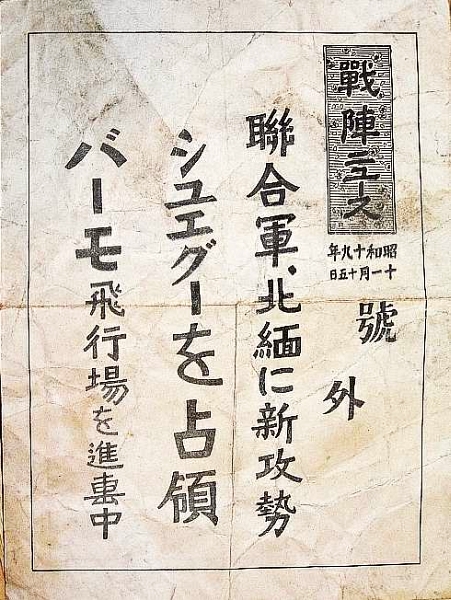 戰陣ニュース
昭和十九年
十一月十五日
號外
聯合軍、北緬に新攻勢
シユエグーを占領
バーモ飛行場を進軍中